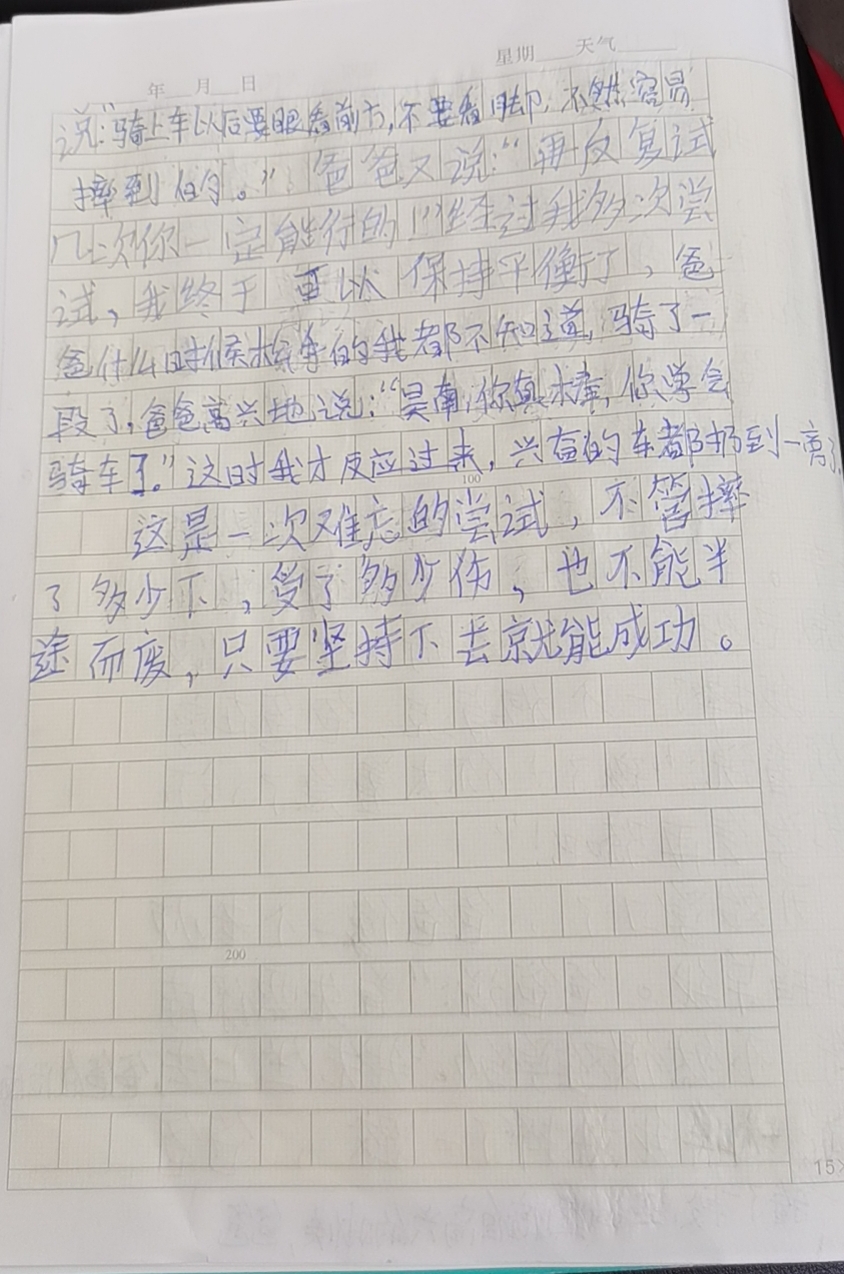 年 月 日 星期 天气
说:“骑上车以后要眼看前方,不要看脚,不然容易
摔到的。”爸爸又说:“再反复试
几次你一定能行的!”经过我多次尝
试,我终于可以保持平衡了,爸
爸什么时候松手的我都不知道,骑了一
段了,爸爸高兴地说:“昊南,你真棒,你学会
骑车了。”这时我才反应过来,兴奋的车都扔到一离了,
100
这是一次难忘的尝试,不管摔
了多少下,受了多少伤,也不能半
途而废,只要坚持下去就能成功。
200
15×